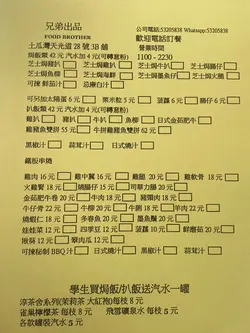 兄弟出品
FOOD BROTHER
公司電話:53205838 Whatsapp:53205838
歡迎電話訂餐
土瓜灣天光道 28 號 3B 舖
營業時間
焗飯類 42 元 汽水加 4 元(可轉意粉)
1100 - 2230
芝士焗雞扒 芝士焗豬扒 芝士焗牛扒 芝士焗腸仔
芝士焗魚柳 芝士焗 芝士焗 芝士焗
可揀 鮮茄汁 忌廉白汁
可另加太陽蛋 6 元 粟米粒 5 元 菠蘿 6 元 腸仔 6 元
扒飯類 42 元 汽水加 4 元(可轉意粉)
雞扒 豬扒 牛扒 魚柳 日式金菇肥牛
雞豬魚雙拼 55 元 牛拼雞豬魚雙拼 62 元
黑椒汁 蒜茸汁 日式燒汁
鐵板串燒
雞肉 16 元 雞中翼 16 元 雞腎 20 元 雞軟骨 18 元
火雞腎 18 元 燒腸仔 15 元 司華力腸 20 元
金菇肥牛卷 20 元 牛肉 18 元 豬肉 18 元 羊肉 18 元
牛仔骨 22 元 牛柳 20 元 豬頸肉 20 元
燒蝦仁 18 元 多春魚 20 元 墨魚鬚 20 元
娃娃菜 12 元 四季豆 12 元 菠蘿 10 元 鮮蘑菇 20 元
秋葵 12 元 翠肉瓜 12 元
可揀秘制 BBQ 汁 黑椒汁 蒜茸汁 日式燒汁
學生買焗飯/扒飯送汽水一罐
淳茶舍系列(茉莉茶 大紅袍)每枝 8 元
雀巢檸檬茶 每枝 8 元 飛雪礦泉水 每枝 5 元
各款罐裝汽水 5 元